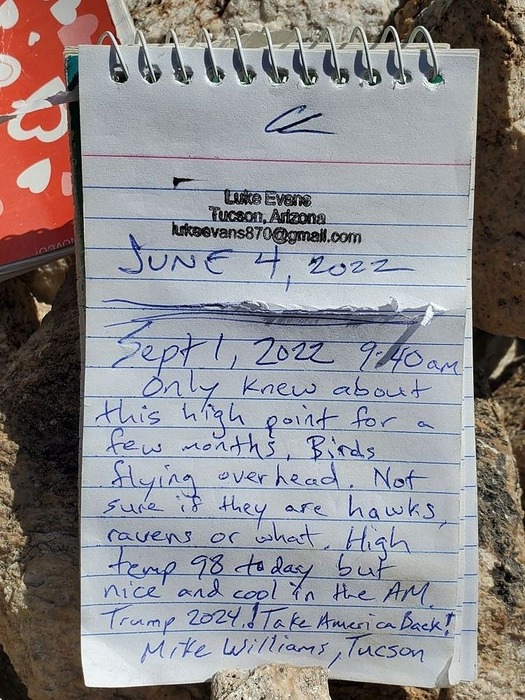 Luke Evans
Tucson, Arizona
lukeevans870@gmail.com
JUNE 4, 2022
Sept 1, 2022 9:40am
Only knew about
this high point for a
few months. Birds
flying overhead. Not
sure if they are hawks,
ravens or what. High
temp 98 today but
nice and cool in the AM.
Trump 2024! Take America Back!
Mike Williams, Tucson